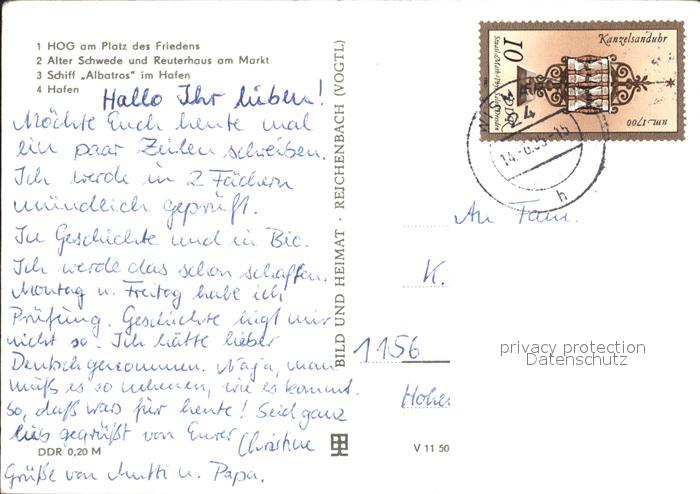 1 HOG am Platz des Friedens
2 Alter Schwede und Reuterhaus am Markt
3 Schiff „Albatros" im Hafen
4 Hafen
Hallo Ihr lieben!
Möchte Euch heute mal
ein paar Zeilen schreiben.
Ich werde in 2 Fächern
mündlich geprüft.
In Geschichte und in Bio.
Ich werde das schon schaffen.
Montag u. Freitag habe ich
Prüfung. Geschichte liegt mir
nicht so. Ich hätte lieber
Deutsch genommen. Naja, man
muß es so nehmen, wie es kommt.
so, daß wars für heute! Seid ganz
lieb gegrüßt von Eurer Christine
DDR 0,20 M
Grüße von Mutti u. Papa.
BILD UND HEIMAT · REICHENBACH (VOGTL)
V 11 50
Kanzelsanduhr
10
DDR
um 1700
h
An Fam.
K.
1156
privacy protection
Datenschutz